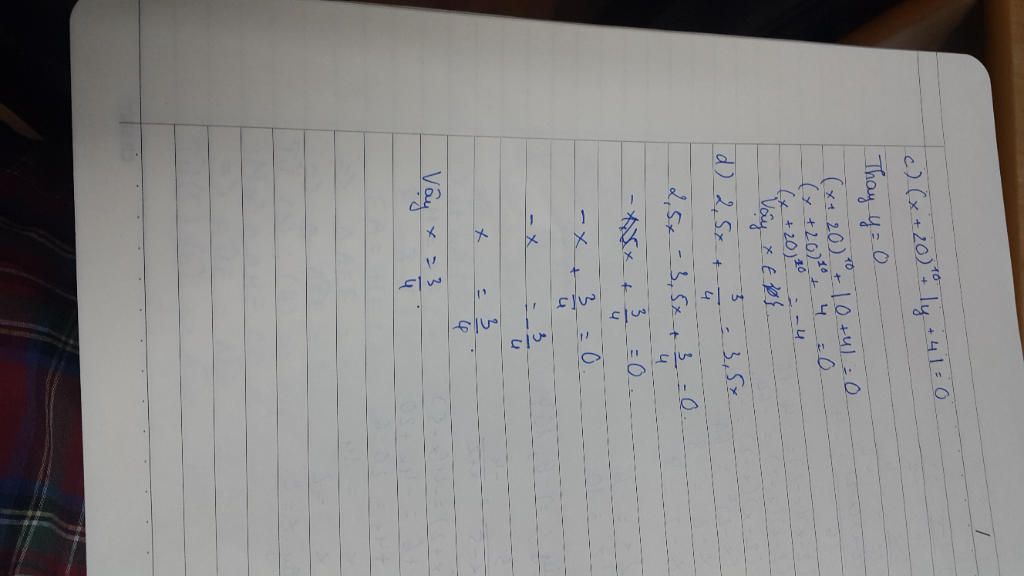 c) (x + 20)¹⁰ + |y + 4| = 0
Thay y = 0
(x + 20)¹⁰ + |0 + 4| = 0
(x + 20)¹⁰ + 4 = 0
(x + 20)¹⁰ = -4
Vậy x ∈
d) 2,5x + 3/4 = 3,5x
2,5x - 3,5x + 3/4 = 0
- x + 3/4 = 0.
- x + 3/4 = 0.
- x = - 3/4
x = 3/4.
Vậy x = 3/4.